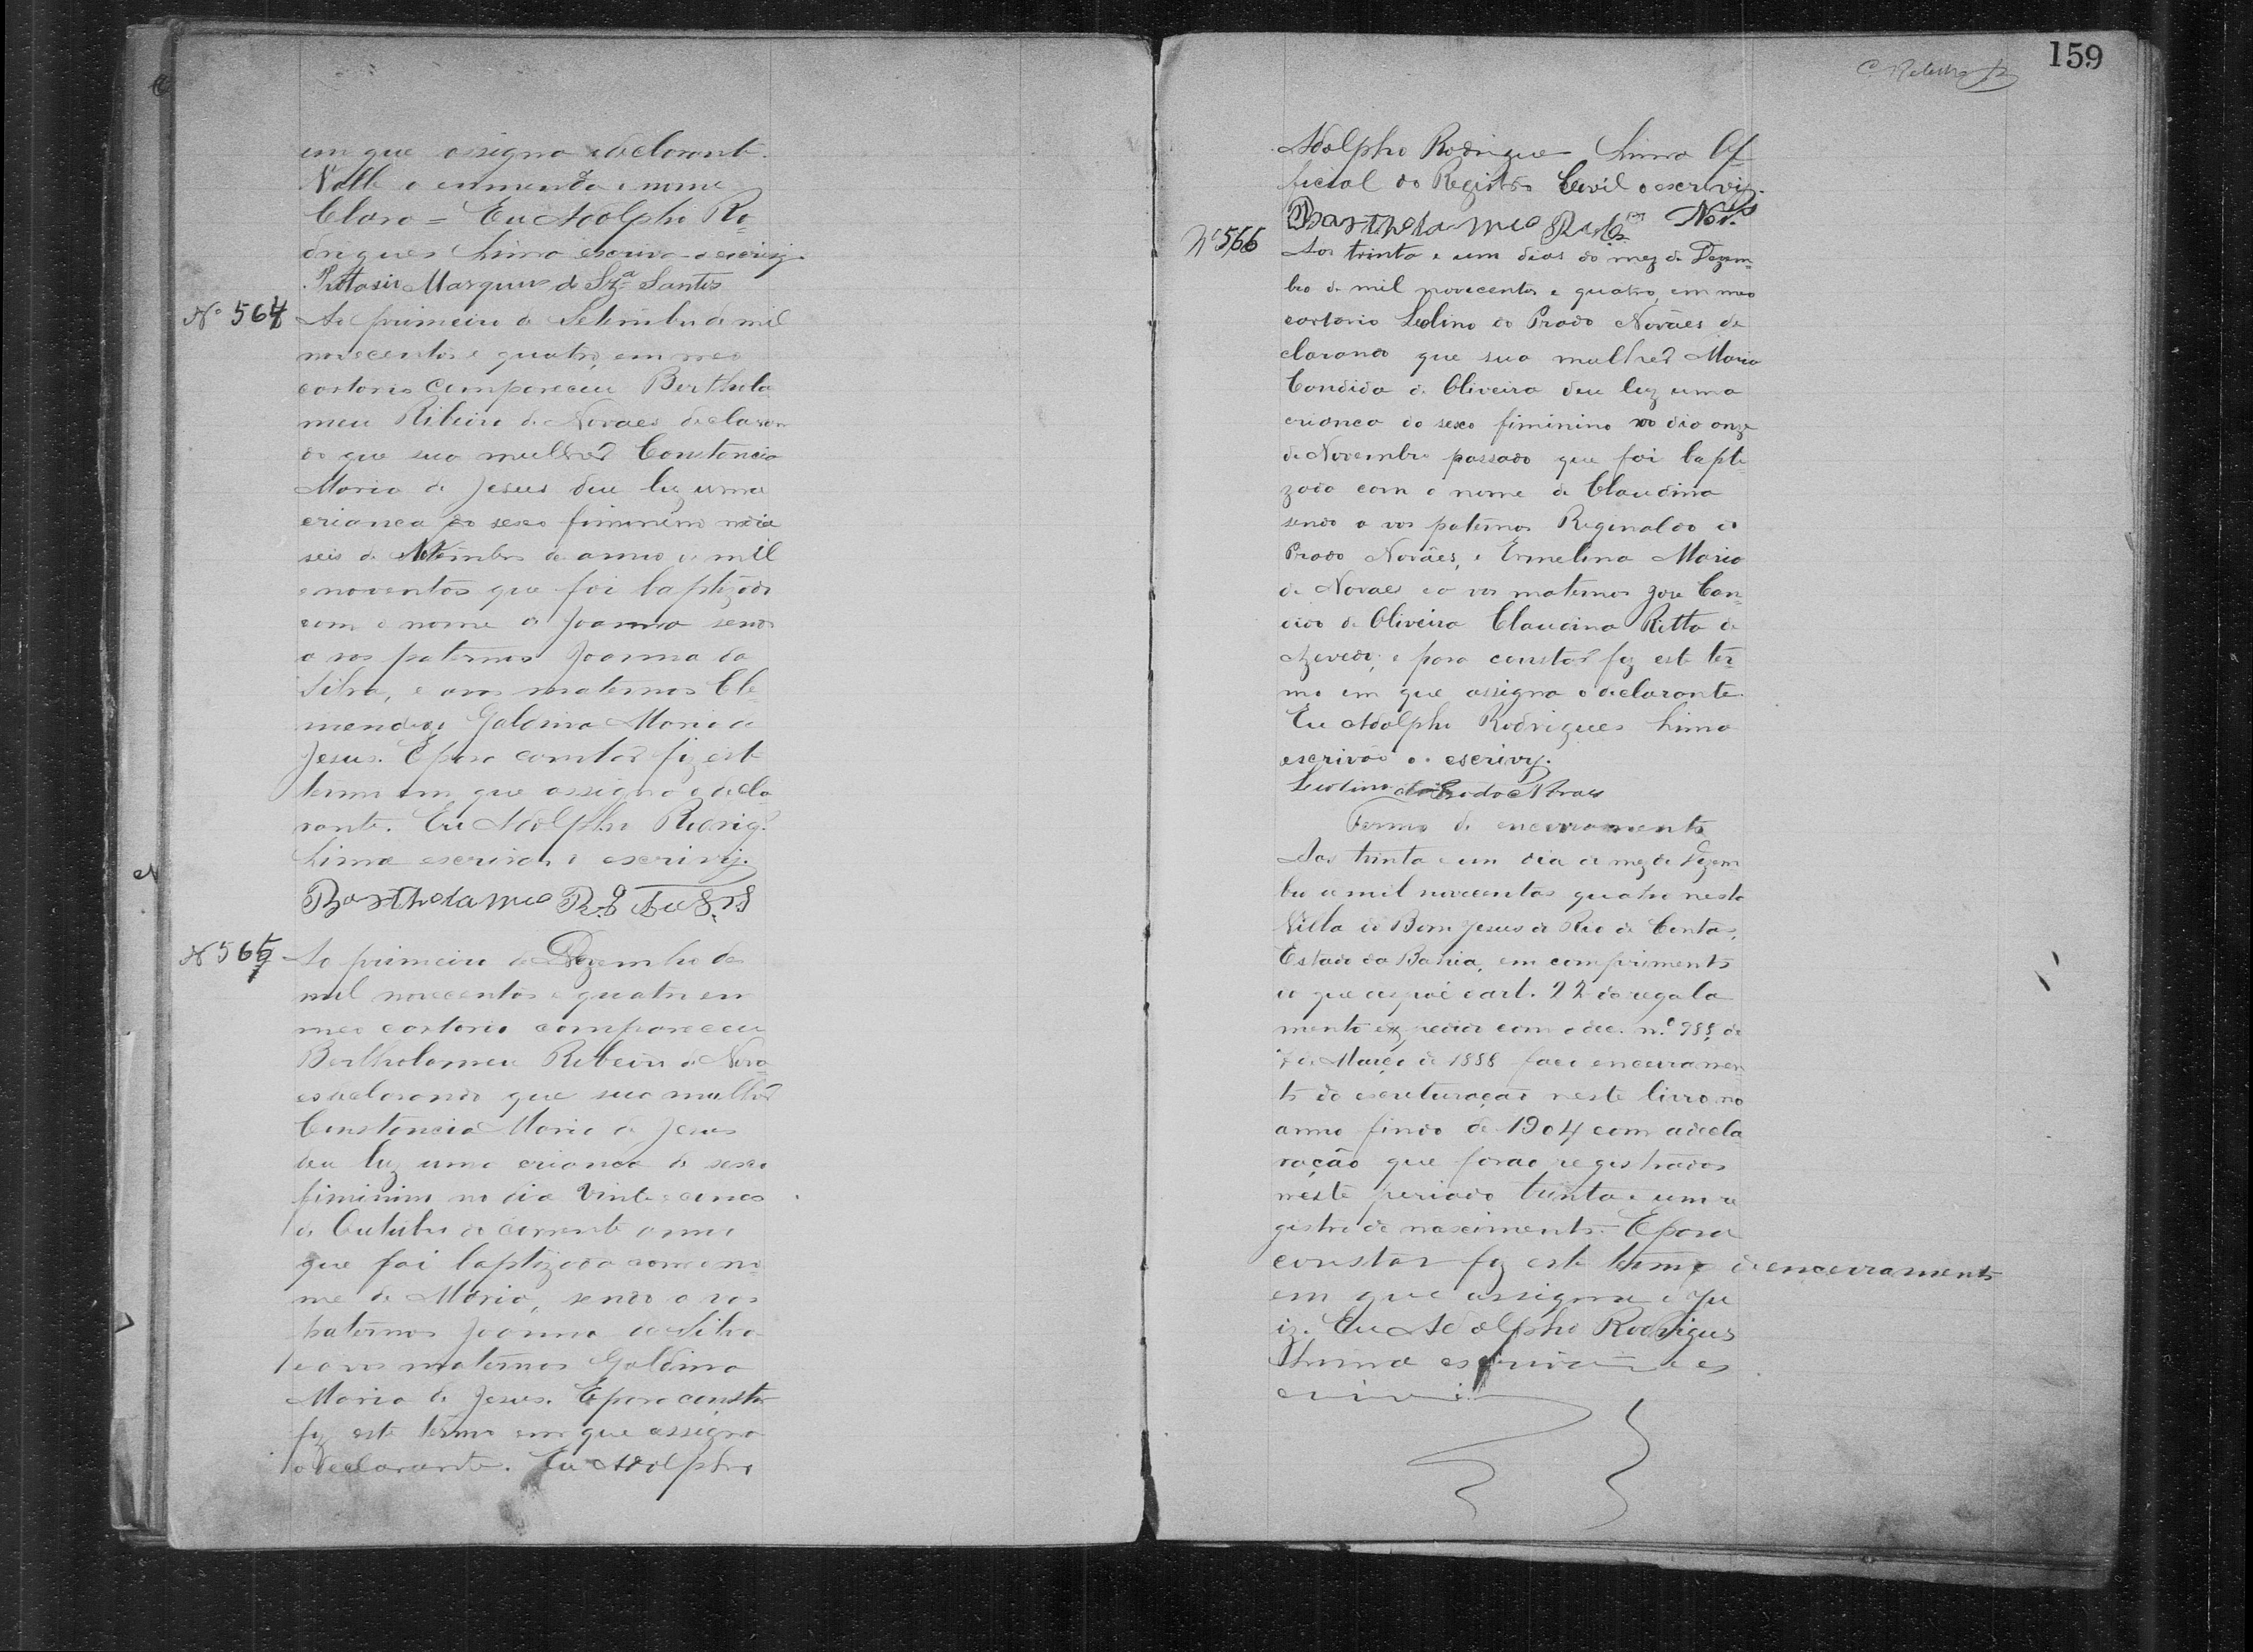 em que assigna o declarante.
Valle a enmenda e nome
Claro = Eu Adolpho Ro-
drigues Lima escrivão o escrivy.
Marques de Sza Santos
Nº 564 Ao primeiro de Setembro de mil
novecentos e quatro, em meo
cartorio compareceu Berthola
meu Ribeiro de Novaes declaran
do que sua mulher Constancia
Maria de Jesus deu luz uma
crianca do sexo fiminino no dia
seis de Setembro do anno de mil
e noventos que foi baptizado
com o nome de Joanna sendo
a vos paternos Joanna da
Silva, e avos maternos Cle
Galdina Maria de
Jesus. E para constar fiz este
termo em que assigna o decla
rante. Eu Adolpho Rodrig.
Lima escrivão o escrivy.
Bartholameo
N 565 Ao primeiro de Dezembro de
mil novecentos e quatro em
meo cartorio compareceu
Bertholomeu Ribeiro de Nova
es declarando que sua mulher
Constancia Maria de Jesus
deu luz uma crianca do sexo
fiminino no dia vinte e cinco
de Outubro do corrente anno
que foi baptizada com o no-
me de Maria, sendo a vos
paternos Joanna da Silva
e a vos maternos Galdina
Maria de Jesus. E para constar
fiz este termo em que assigna
o declarante. Eu Adolpho
159
Adolpho Rodrigues Lima Of-
ficial do Registro Civil o escrivy.
Bartholameo Nov.s
Nº 566 Aos trinta e um dias do mez de Dezem-
bro de mil novecentos e quatro, em meo
cartorio Leolino do Prado Novães de
clarando que sua mulher Maria
Candida de Oliveira deu luz uma
crianca do sexo fiminino no dia onze
de Novembro passado que foi bapti
zada com o nome de Claudina
sendo a vos paternos Reginaldo do
Prado Novães, e Ermelina Maria
de Novaes e a vos maternos Jose Can-
dido de Oliveira Claudina Ritta de
Azevedo; e para constar fiz este ter-
mo em que assigna o declarante.
Eu Adolpho Rodrigues Lima
escrivão o escrivy.
Leolino do Prado Novaes
Termo de encerramento
Aos trinta e um dia do mez de Dezem
bro de mil novecentos quatro nesta
Villa do Bom Jesus do Rio de Contas,
Estado da Bahia, em comprimento
do que dispoe o art. 22 do regula
mento expedido com o dec. n.º 9886 de
7 de Março de 1888 faco encerramen
to da escrituração neste livro no
anno findo de 1904 com a decla
ração que forao registrados
neste periodo trinta e um re
gistro de nascimento. E para
constar fiz este termo de encerramento
em que assigna o Ju
iz. Eu Adolpho Rodrigues
Lima escrivão o es
crivi.